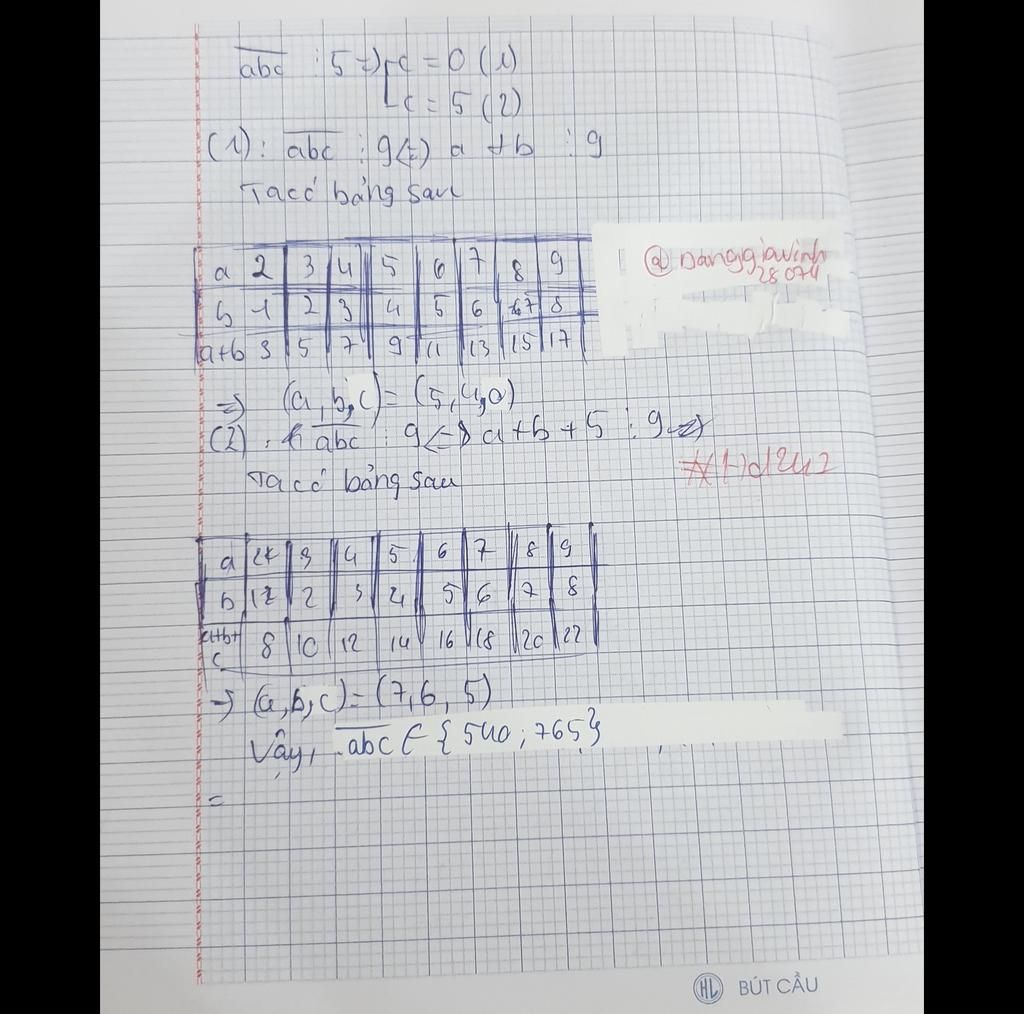 abc ⋮ 5 => [ c = 0 (1)
c = 5 (2)
(1): abc ⋮ 9 <=> a + b ⋮ 9
Ta có bảng sau
a 2 3 4 5 6 7 8 9
b 1 2 3 4 5 6 7 8
a+b 3 5 7 9 11 13 15 17
@Danggiavinh
28074
=> (a, b, c) = (5, 4, 0)
(2): abc ⋮ 9 <=> a + b + 5 ⋮ 9
Ta có bảng sau
a 2 3 4 5 6 7 8 9
b 1 2 3 4 5 6 7 8
a+b+c 8 10 12 14 16 18 20 22
=> (a, b, c) = (7, 6, 5)
Vậy, abc ∈ {540; 765}
=
HL BÚT CẦU